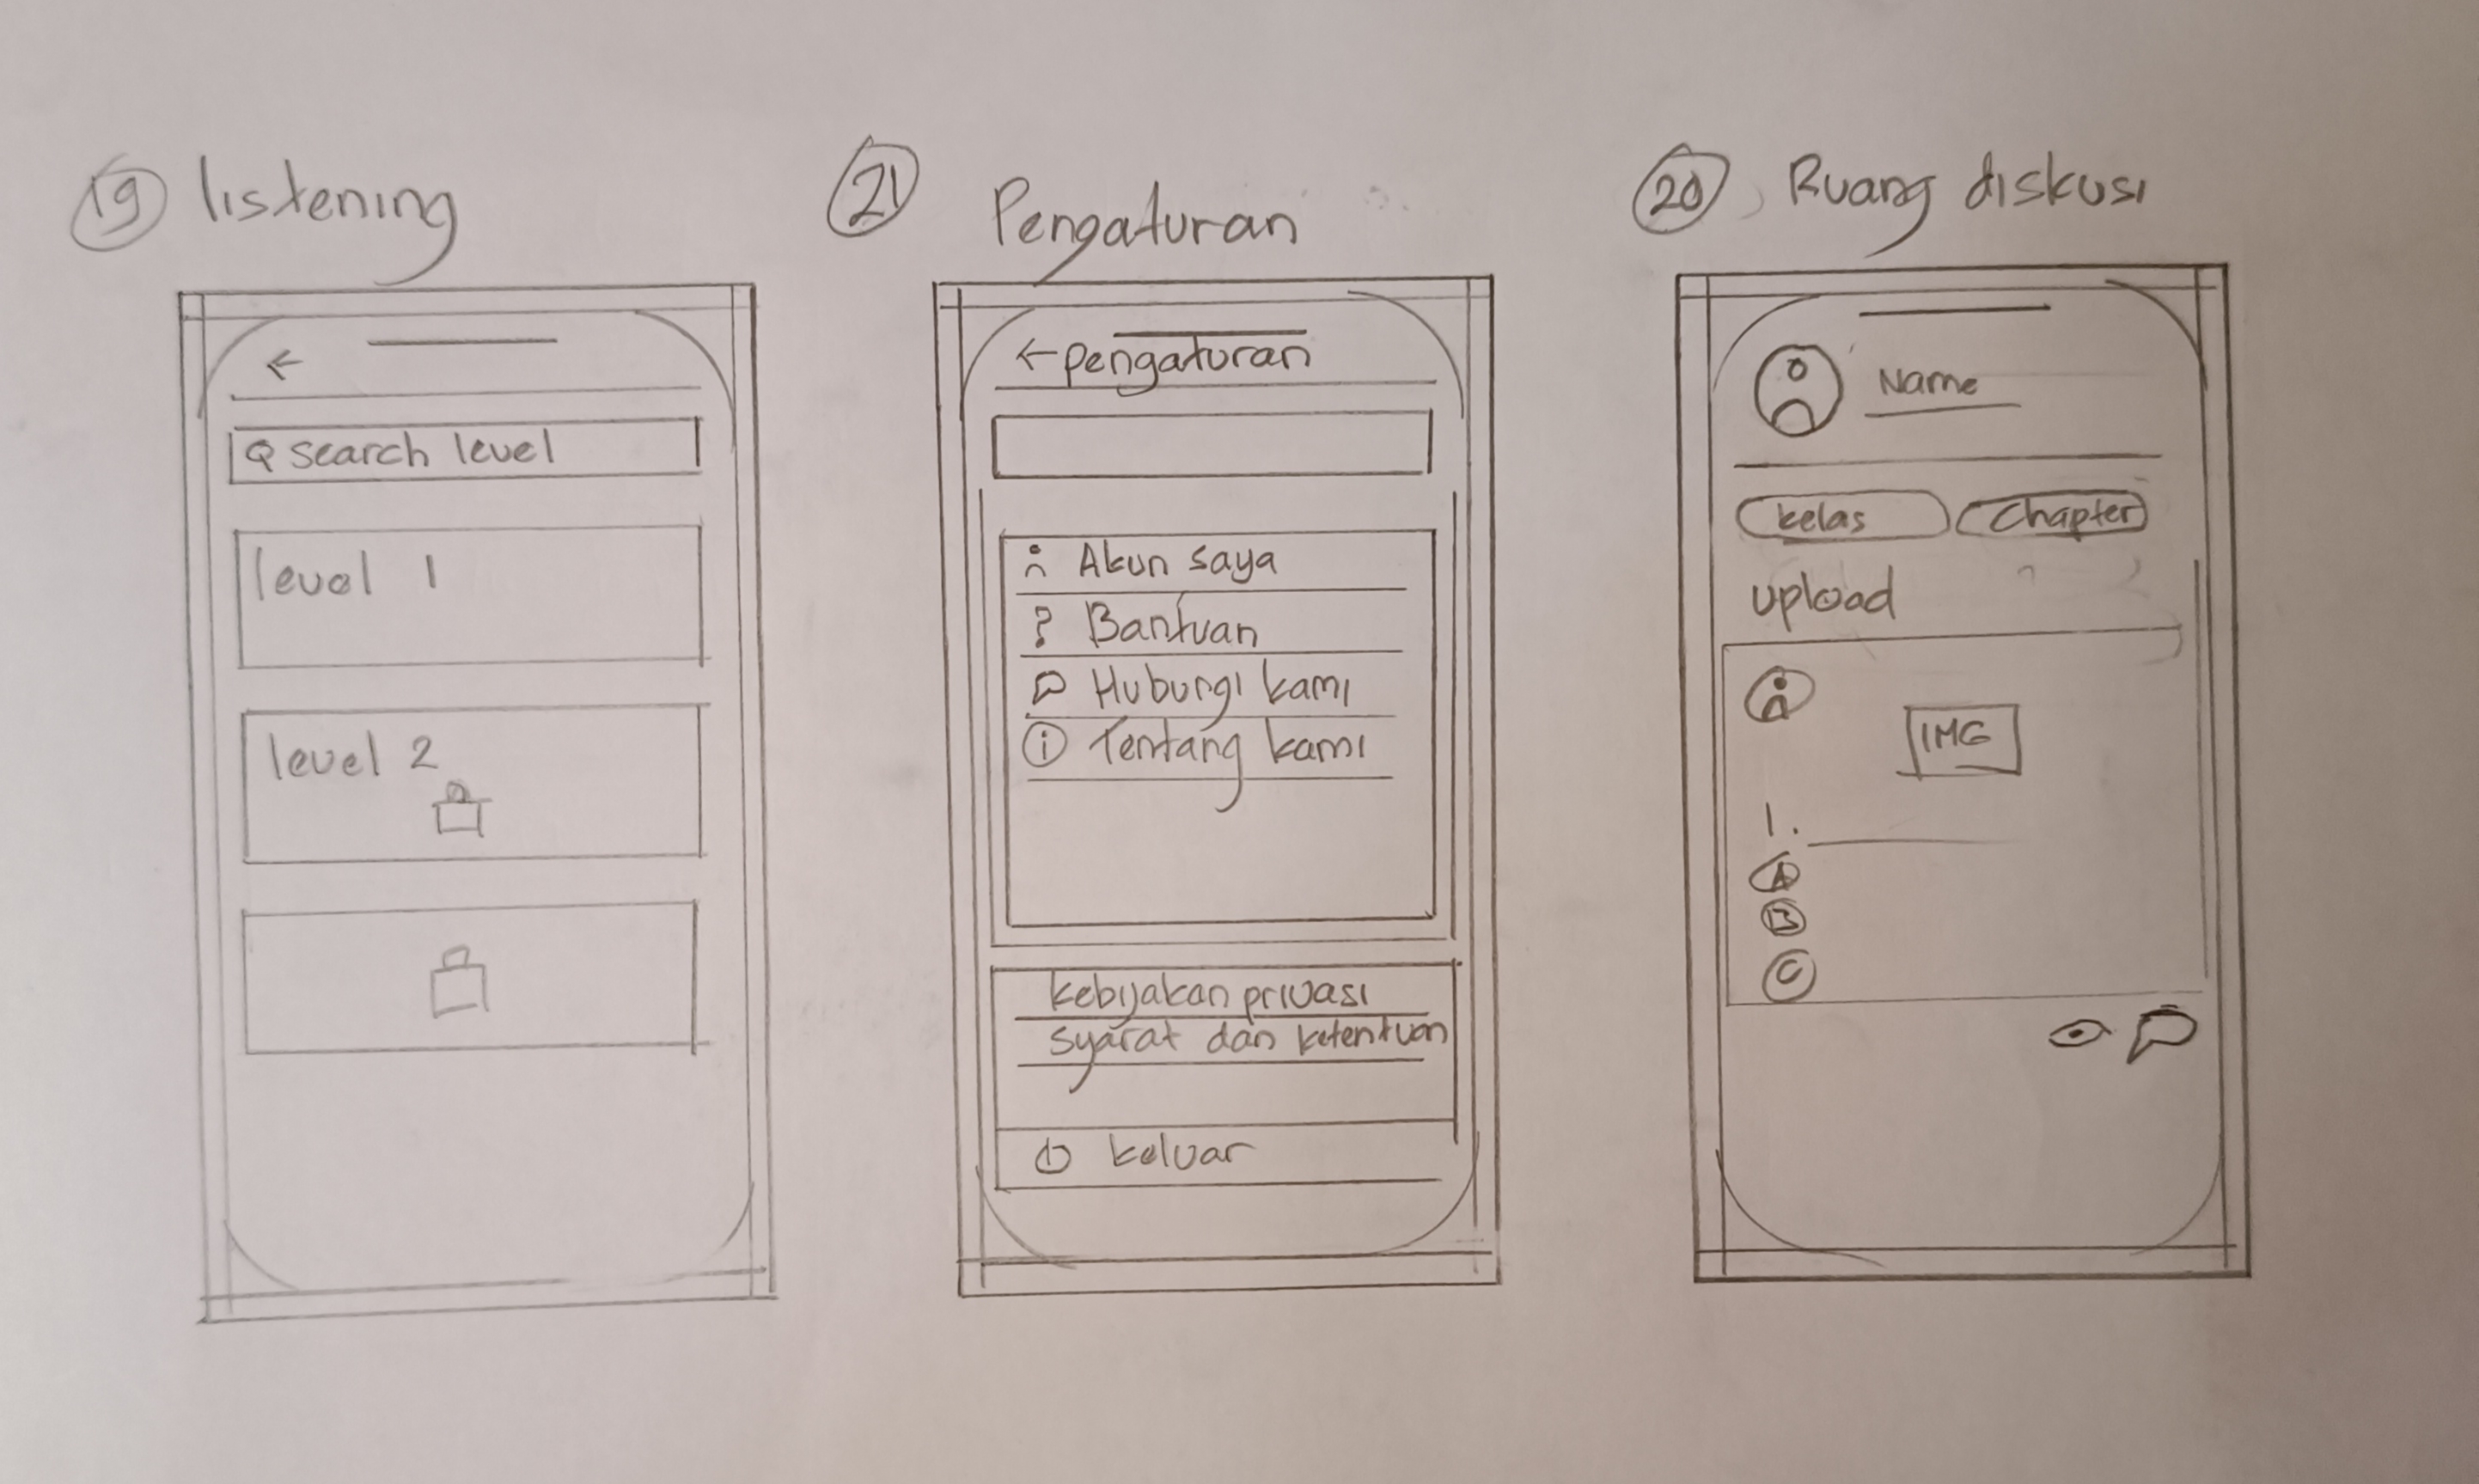 19 listening
←
search level
level 1
level 2
21 Pengaturan
← pengaturan
Akun saya
? Bantuan
Hubungi kami
i Tentang kami
kebijakan privasi
syarat dan ketentuan
keluar
20 Ruang diskusi
Name
kelas Chapter
upload
IMG
1.
A
B
C